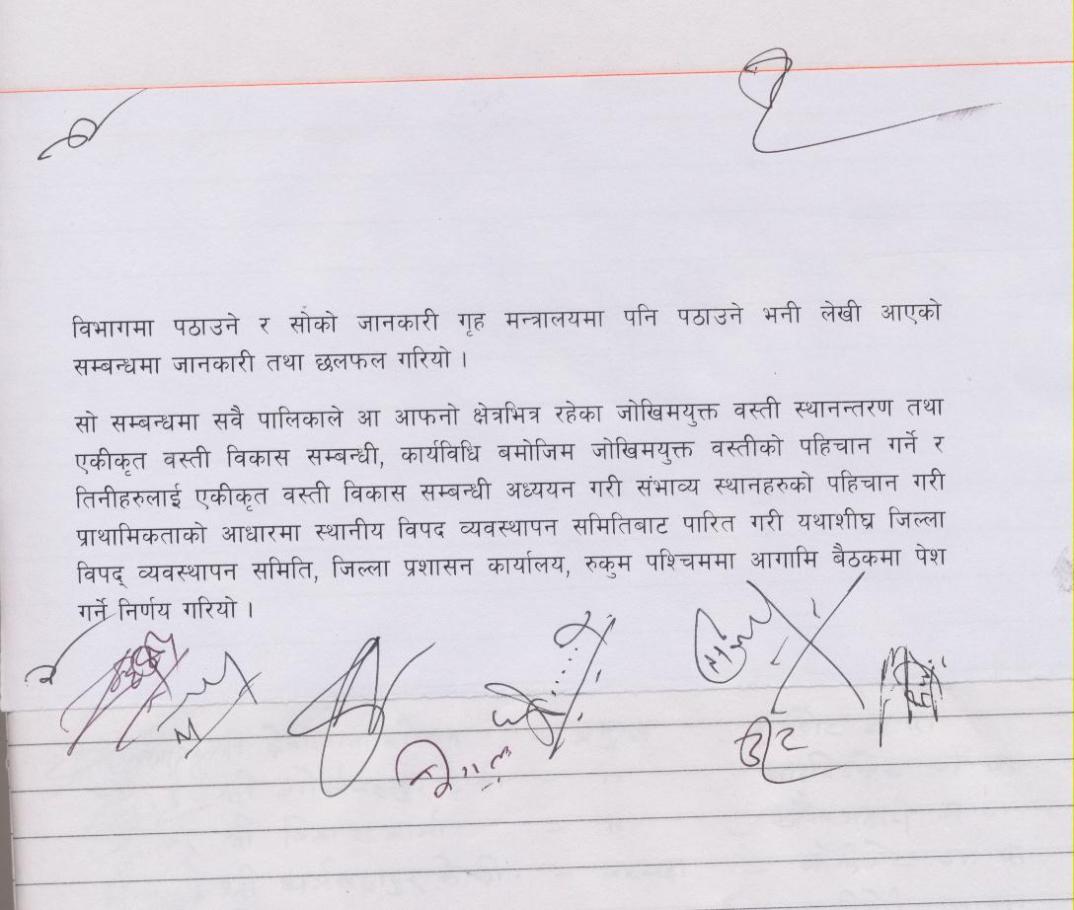 विभागमा पठाउने र सोको जानकारी गृह मन्त्रालयमा पनि पठाउने भनी लेखी आएको
सम्बन्धमा जानकारी तथा छलफल गरियो ।
सो सम्बन्धमा सवै पालिकाले आ आफनो क्षेत्रभित्र रहेका जोखिमयुक्त वस्ती स्थानन्तरण तथा
एकीकृत वस्ती विकास सम्बन्धी, कार्यविधि बमोजिम जोखिमयुक्त वस्तीको पहिचान गर्ने र
तिनीहरुलाई एकीकृत वस्ती विकास सम्बन्धी अध्ययन गरी संभाव्य स्थानहरुको पहिचान गरी
प्राथामिकताको आधारमा स्थानीय विपद व्यवस्थापन समितिबाट पारित गरी यथाशीघ्र जिल्ला
विपद् व्यवस्थापन समिति, जिल्ला प्रशासन कार्यालय, रुकुम पश्चिममा आगामि बैठकमा पेश
गर्ने निर्णय गरियो ।